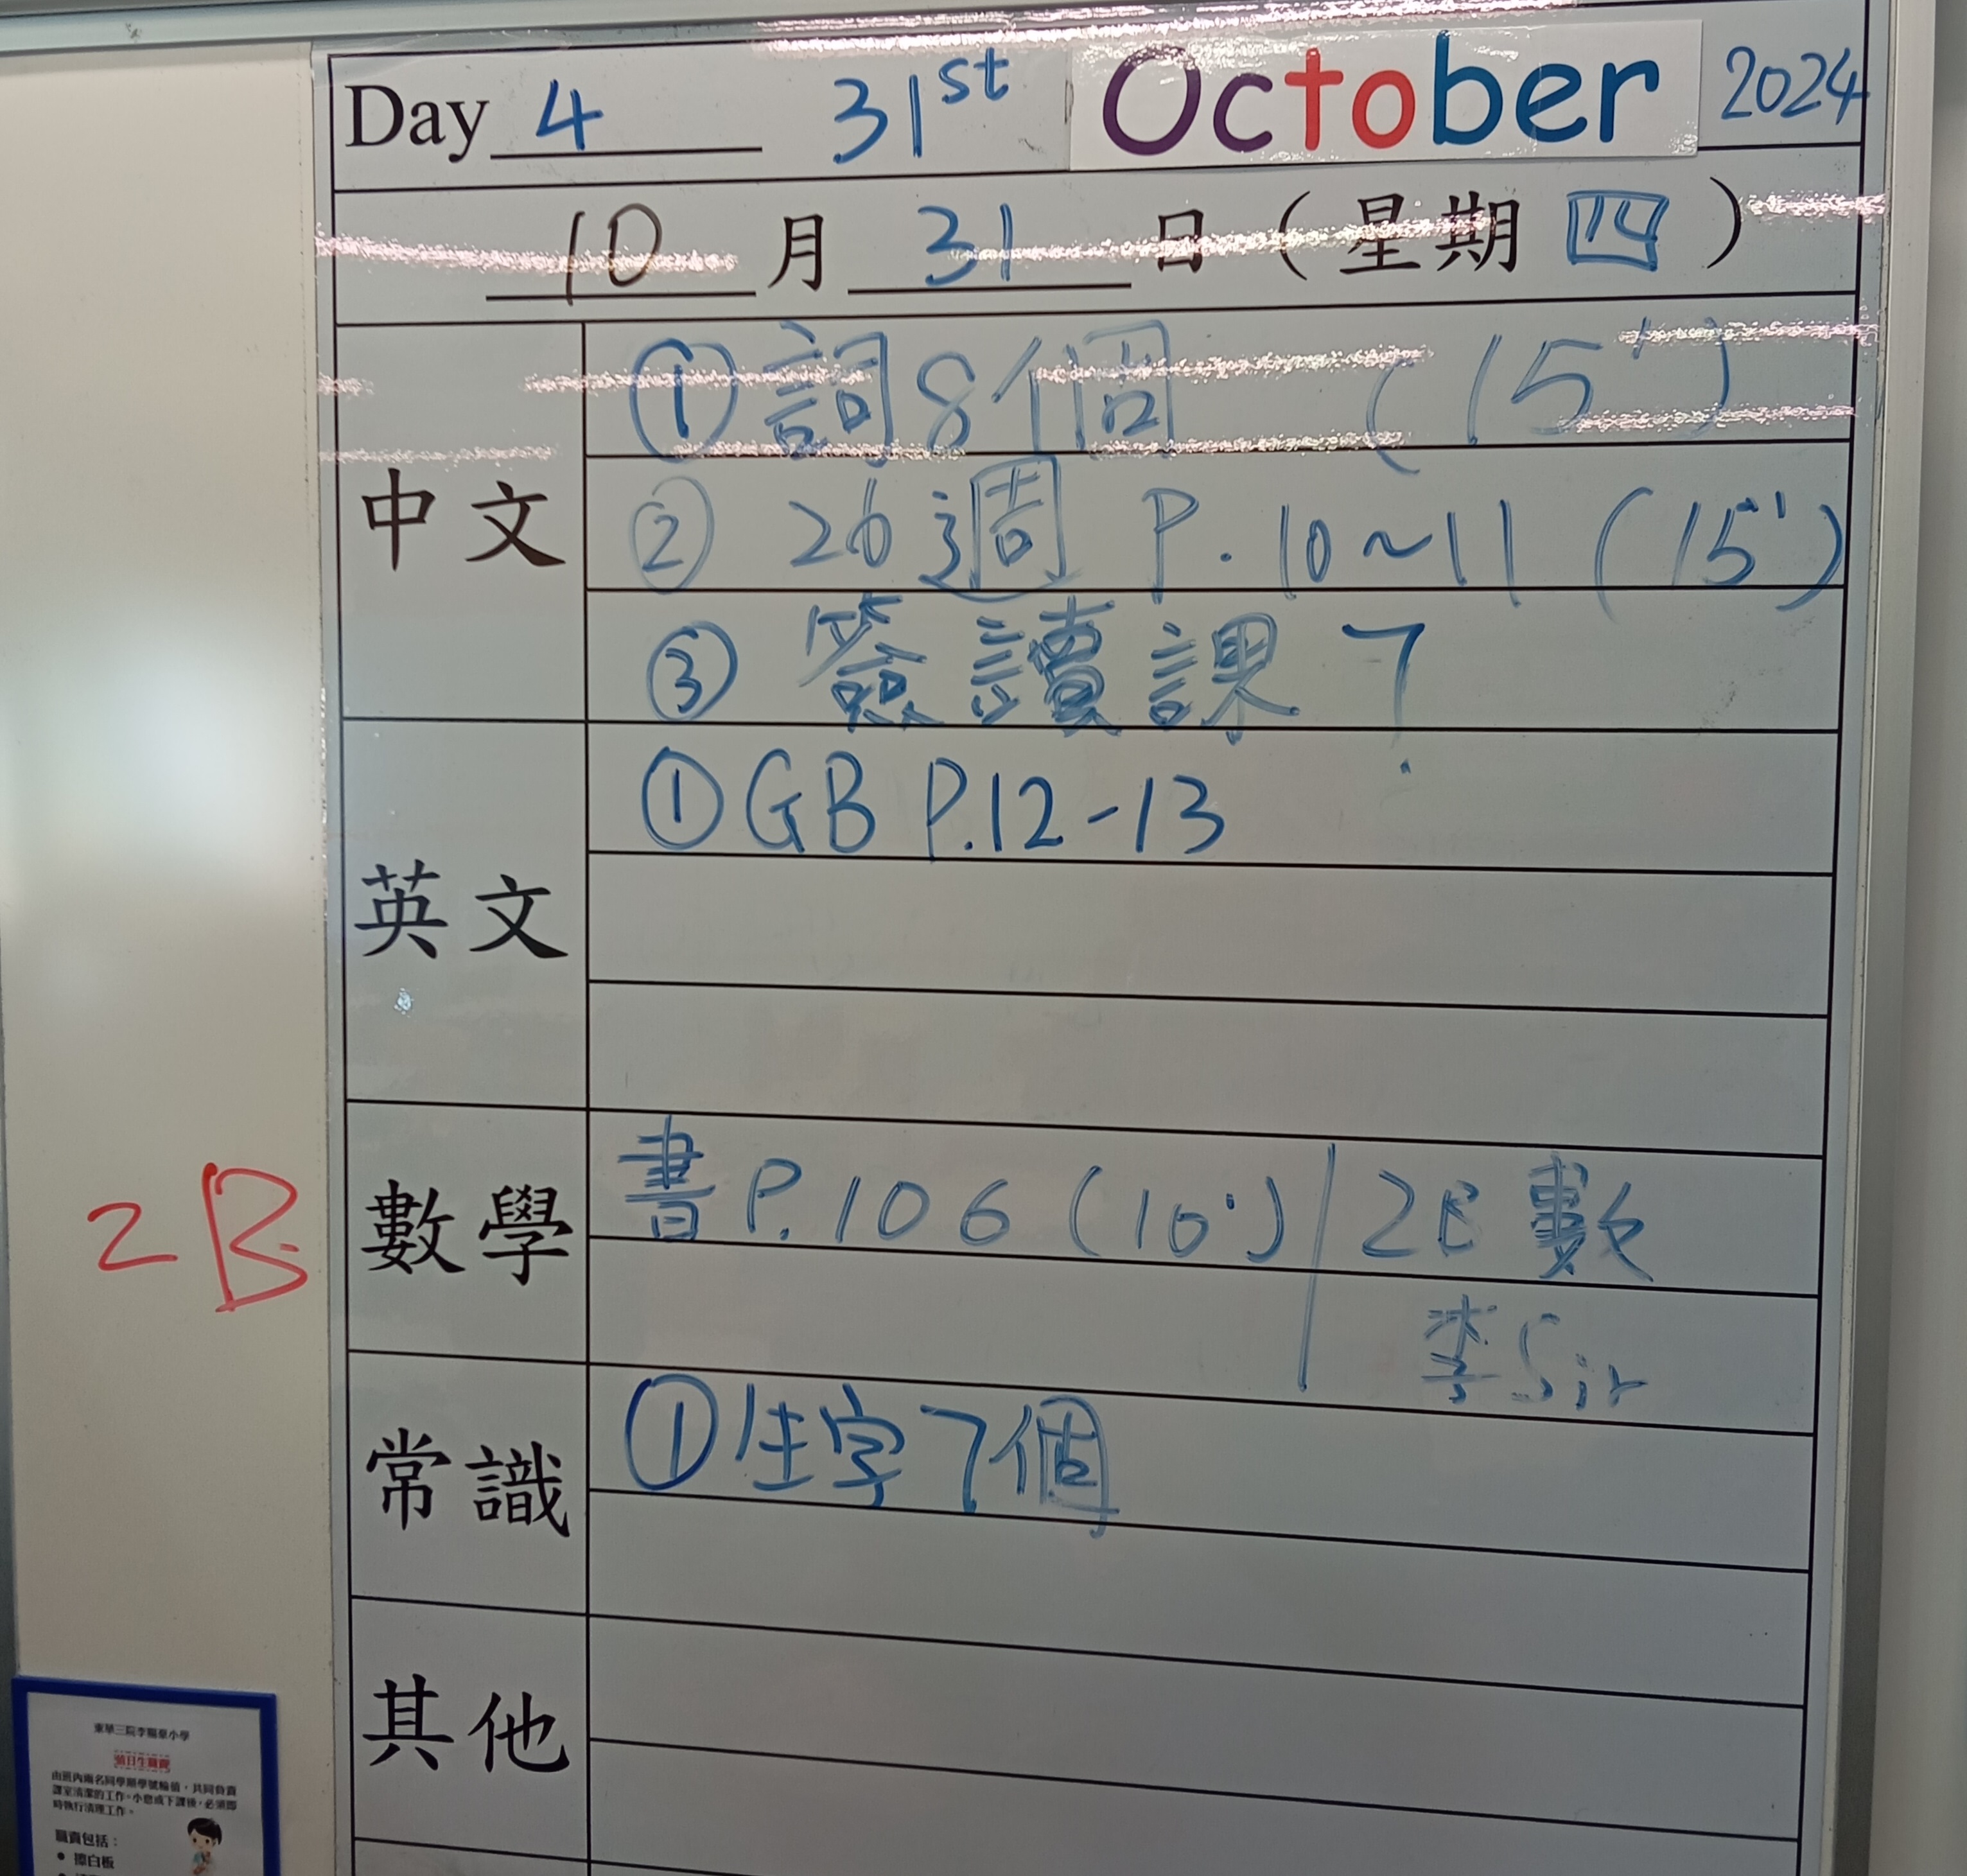 Day 4 31st October 2024
10 月 31 日 ( 星期 四 )
中文
① 詞8個 (15')
② 26週 P.10~11 (15')
③ 簽讀課7
英文
① GB P.12-13
2B
數學
書 P.106 (10') / 2B 數
李Sir
常識
① 生字7個
其他
值日生職責
由班內兩名同學順學號輪值，共同負責
課室清潔的工作。小息或下課後，必須即
時執行清理工作。
職責包括：
• 擦白板